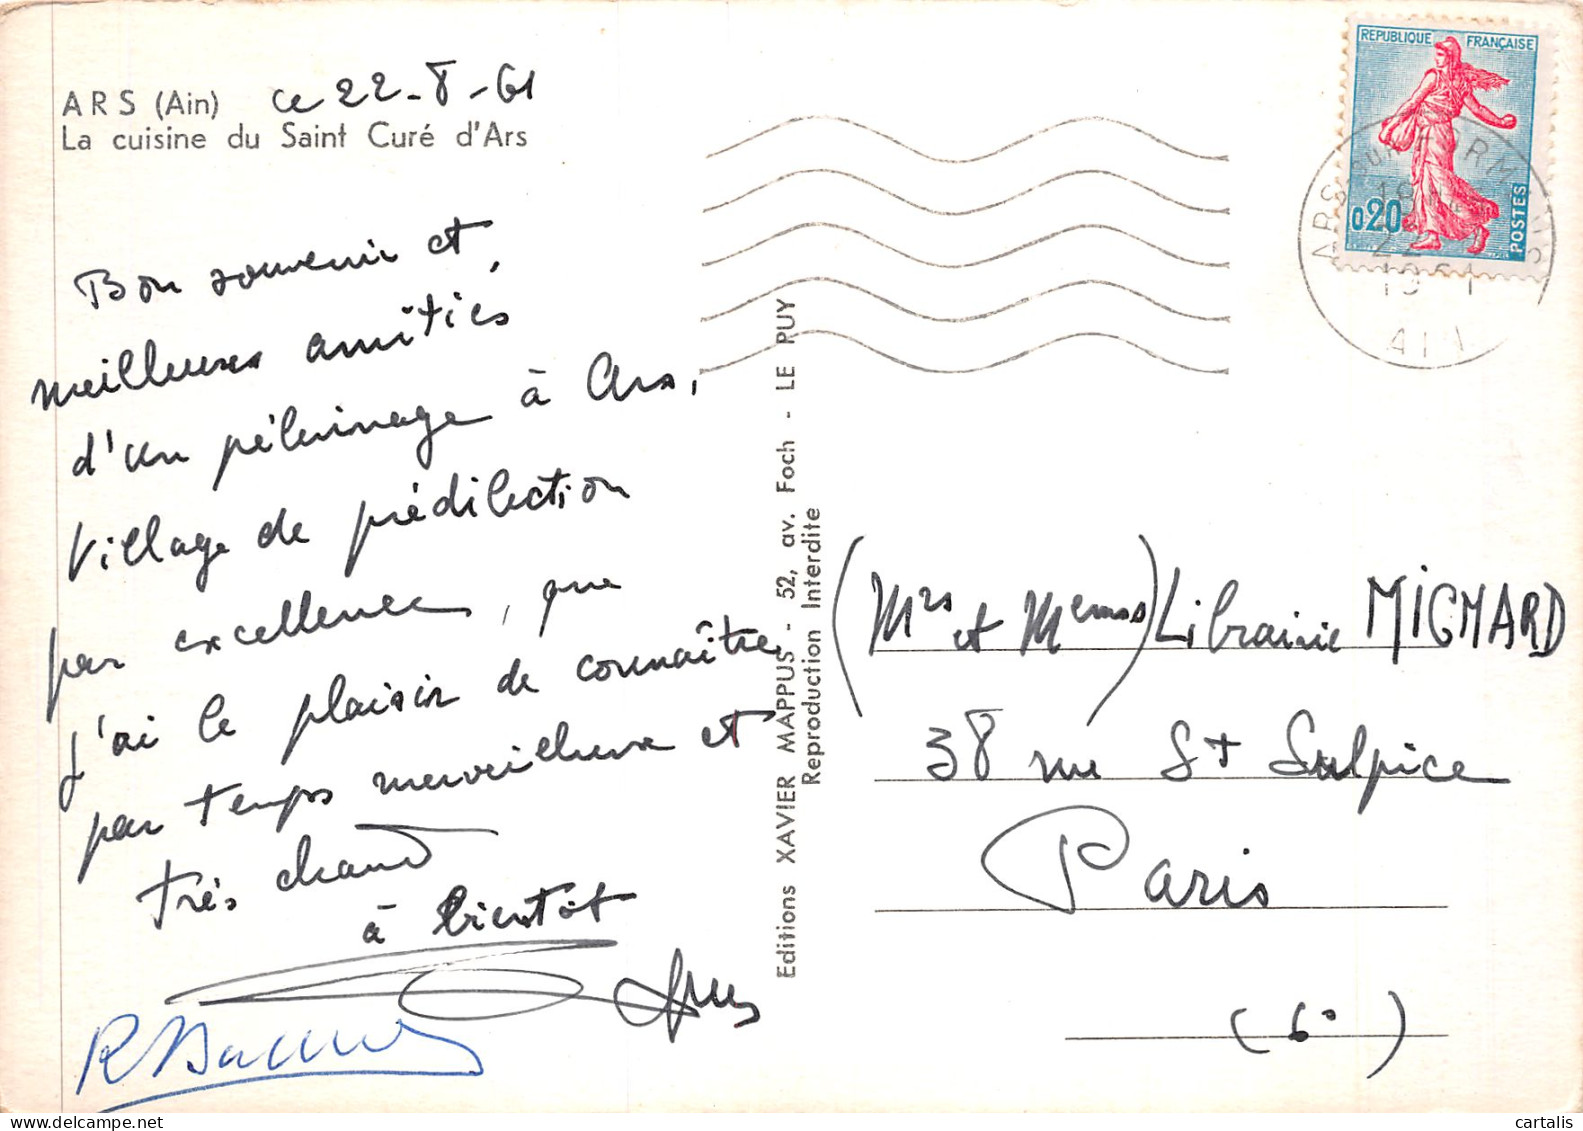 ARS (Ain) ce 22-8-61
La cuisine du Saint Curé d'Ars
Bon souvenir et
meilleures amitiés,
d'un pélerinage à Ars,
Village de prédilection
par excellence, que
j'ai le plaisir de connaître
par temps merveilleux et
très chaud
à bientôt
Editions XAVIER MAPPUS - 52, av. Foch - LE PUY
Reproduction Interdite
REPUBLIQUE FRANÇAISE
0,20
POSTES
ARS-sur-FORMANS
22
1961
AIN
(Mrs et Memes) Librairie MIGNARD
38 rue St Sulpice
Paris
(6°)
cartalis